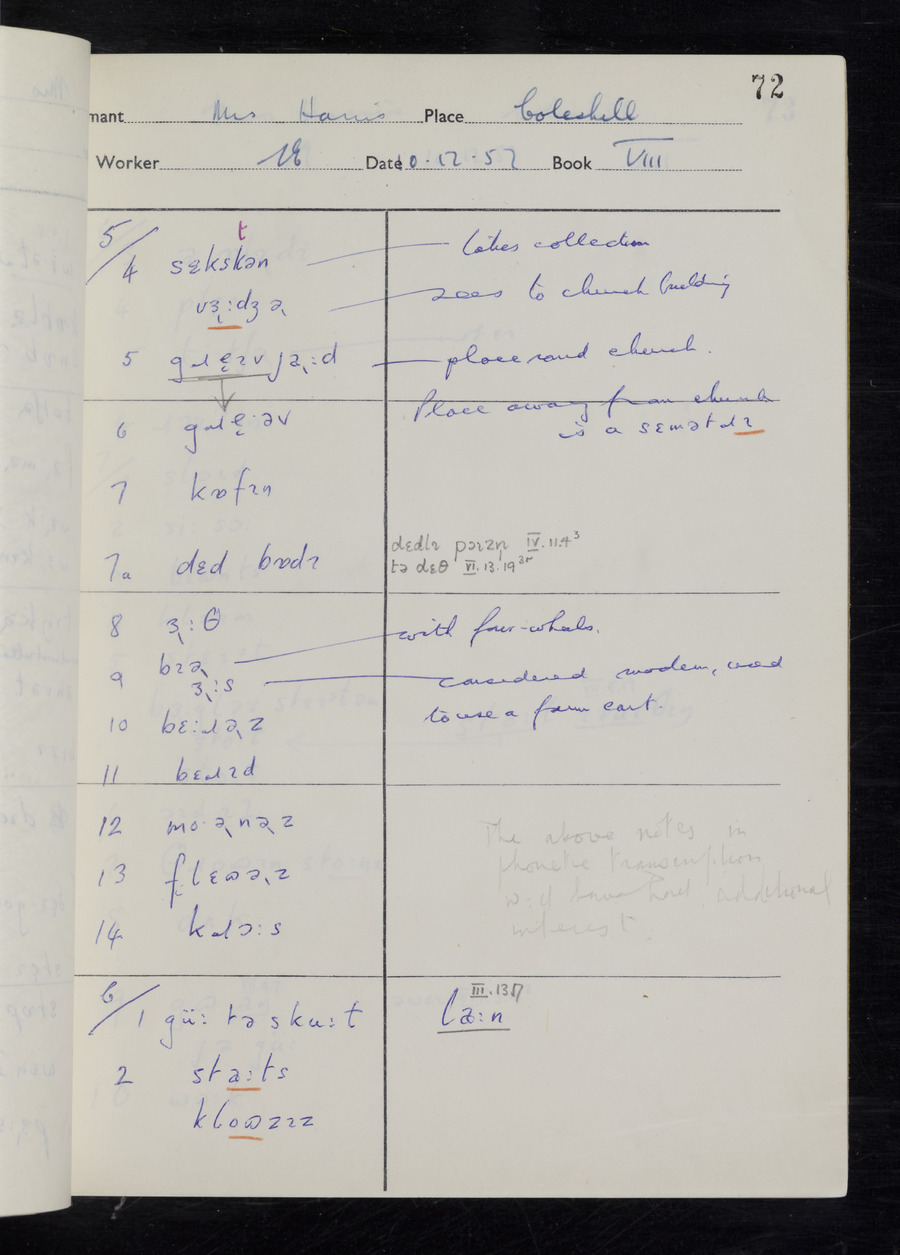 72
mant Mrs Harris Place Coleshill
Worker Date 10.12.57 Book VIII
5/
t
4 sɛkskən takes collection
vɜ˞:dʒə˞ sees to church building
5 gɹɛɪv jə˞:d place round church.
6 gɹɛ:əv Place away from church
is a sɛmətɹɪ
7 kɒfɪn
7a dɛd bɒdɪ dɛdlɪ pɔɪzn̩ IV.11.4³
tə dɛθ VI.13.19
8 ɜ˞:θ with four-wheels.
9 bɪə˞
ɜ˞:s considered modern, used
to use a farm cart.
10 bɛ:ɹə˞z
11 bɛɹɪd
12 mo·ə˞nə˞z The above notes in
13 flɛʊə˞z phonetic transcription
additional
14 kɹɔ:s interest
6/
1 gü: tə sku:t III.13.17
la:n
2 sta:ts
kloʊzɪz